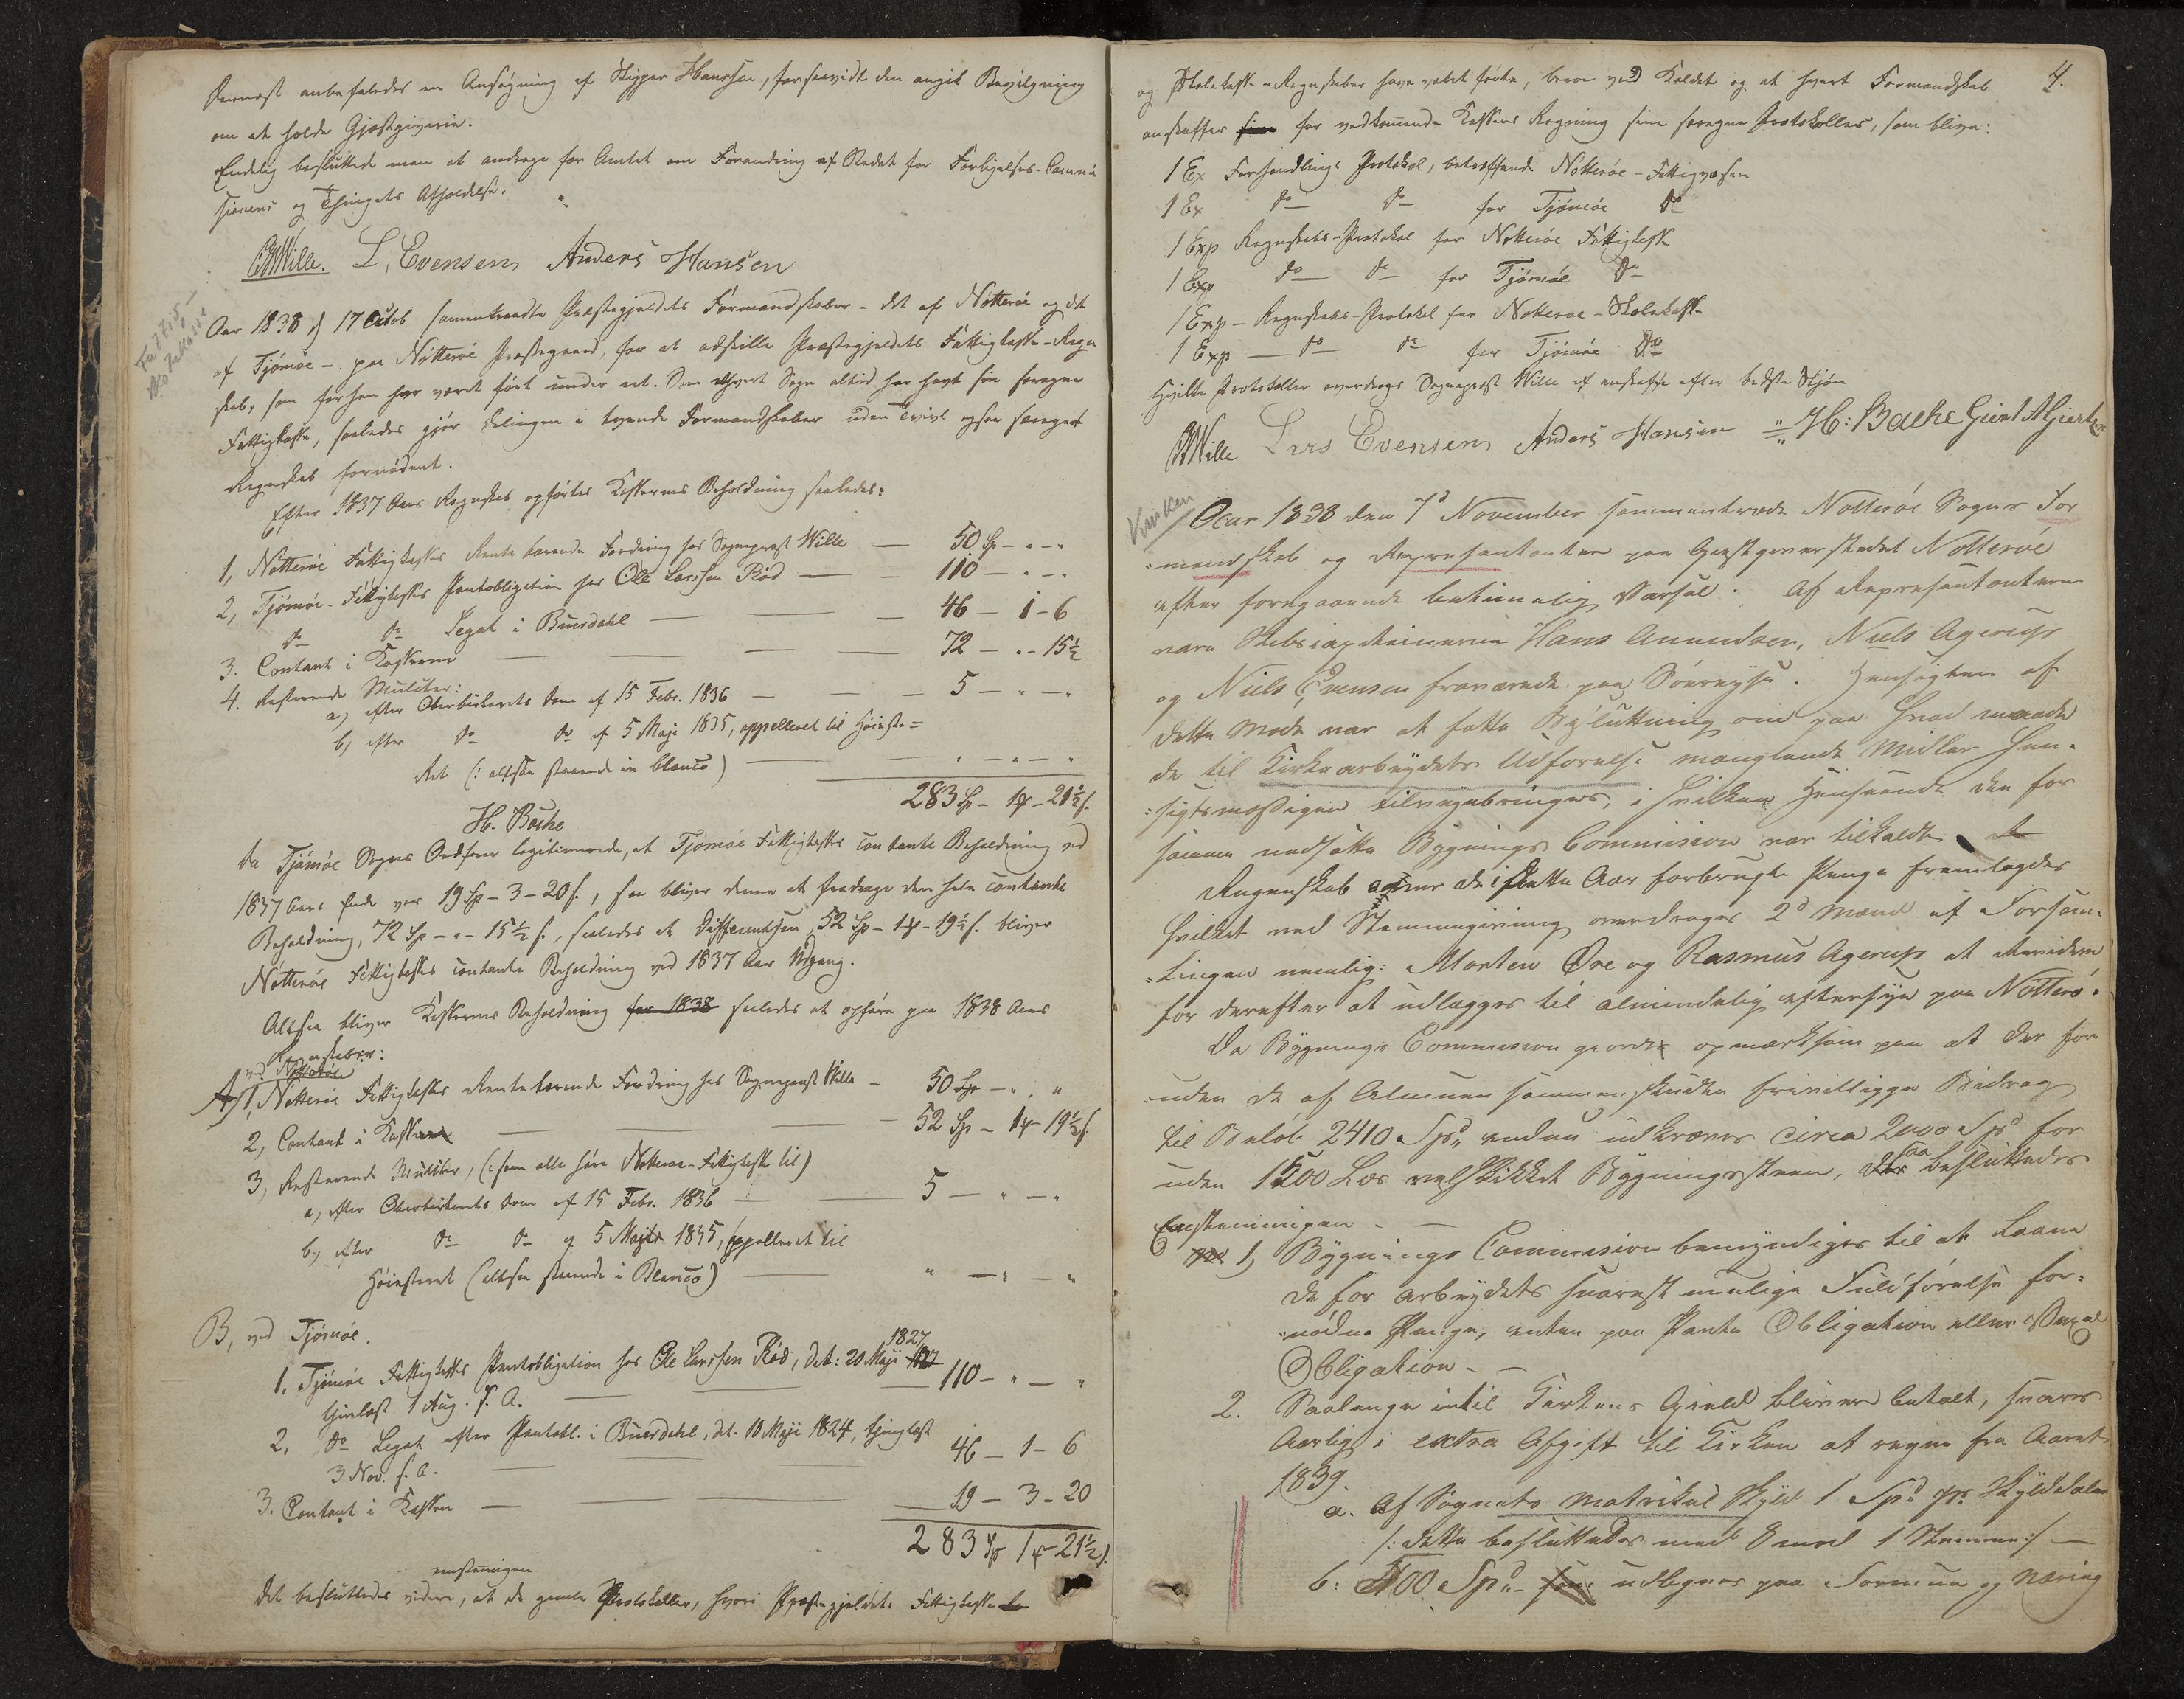 Dernæst anbefaledes en Ansøgning af Skipper Hanssen, forsaavidt den angik Bevilgning
om at holde Gjæstgiverie.
Endelig besluttede man at andrage for Amtet om Forandring af Stedet for Forligelses-Commis
sionens og Thingets Afholdelse.
Wille. L, Evensen Anders Hansen
Aar 1838 d 17 Octob sammentraadte Præstegjeldets Formandskaber - det af Nötteröe og det
af Tjömöe - paa Nötteröe Præstegaard, for at adskille Præstegjeldets Fattigkasse-Regn
skab, som forhen har været ført under eet. Som ethvert Sogn altid har havt sin særegne
Fattigkasse, saaledes gjör Delingen i tvende Formandskaber uden Tvivl ogsaa særeget
Regnskab fornödent.
Efter 1837 Aars Regnskab opførtes Kassernes Beholdning saaledes:
1, Nötteröe Fattigkasses Rentebærende Fordring hos Sognepræst Wille — 50 Sp - " - "
2, Tjömöe-Fattigkasses Pantobligation hos Ole Larssen Röd — 110 - " - "
do do Legat i Buerdahl — 46 - 1 - 6
3. Contant i Kasserne — 72 - " - 15½
4. Resterende Mulcter:
a) efter Overbirkerets Dom af 15 Febr. 1836 — 5 - " - "
b, efter do do af 5 Maji 1835, appelleret til Høieste=
Ret (: altsaa staaende in blanco) — " - " - "
283 Sp - 1 - 21½ s.
H. Bache
Da Tjömöe Sogns Ordfører legitimerede, at Tjömöe Fattigkasses contante Beholdning ved
1837 Aars Ende var 19 Sp - 3 - 20 s., saa bliver denne at fradrage den hele contante
Beholdning, 72 Sp - " - 15½ s., saaledes at Differentsen 52 Sp - 1 - 19½ s. bliver
Nötteröe Fattigkasses contante Beholdning ved 1837 Aars Udgang.
Altsaa bliver Kassernes Beholdning for 1838 saaledes at opføre paa 1838 Aars
Regnskaber:
ved Nötteröe
A, 1, Nötteröe Fattigkasses Rentebærende Fordring hos Sognepræst Wille - 50 Sp - " "
2, Contant i Kassen — 52 Sp - 1 - 19½ s.
3, Resterende Mulcter, (: som alle høre Nötteröe-Fattigkasse til)
a, efter Overbirkerets Dom af 15 Febr. 1836 — 5 - " - "
b, efter do do af 5 Maji 1835, (appelleret til
Höiesteret (altsaa staaende i Blanco) — " - " - "
B, ved Tjömöe.
1, Tjömöe Fattigkasses Pantobligation hos Ole Larssen Röd, dat: 20 Maji 1827 110 - " - "
thinglæst 1 Aug. s. A.
2, do Legat efter Pantobl. i Buerdahl, dat. 10 Maji 1824, thinglæst 46 - 1 - 6
3 Nov. s. A.
3. Contant i Kassen — 19 - 3 - 20
283 Sp 1 - 21½ s.
eenstemmigen
Det besluttedes videre, at de gamle Protokoller, hvori Præstegjeldets Fattigkasse
4.
og Skolekasse-Regnskaber have været førte, beroe ved Kaldet og at hvert Formandskab
anskaffer for vedkommende Kasses Regning sine særegne Protokoller, som blive:
1 Ex Forhandlings Protokol, betræffende Nötteröe-Fattigvæsen
1 Ex do do for Tjömöe do
1 Exp Regnskabs-Protokol for Nötteröe Fattigkasse
1 Exp do do for Tjömöe do
1 Exp - Regnskabs-Protokol for Nötteröe-Skolekasse
1 Exp — do do for Tjömöe do
Hvilke Protokoller overdroges Sognepræst Wille at anskaffe efter bedste Skjön
Wille Lars Evensen Anders Hansen H: Bache Giert A Giertsen
Kirken
Aar 1838 den 7d November sammentraadte Nötteröe Sogns For
mandskab og Repræsentanter paa Gjestgiverstedet Nötteröe
efter foregaaende betimelig Varsel. Af Repræsentanterne
vare Skibscapitainerne Hans Amundsen, Niels Agerup
og Niels Evensen fraværende paa Söereyse. Hensigten af
dette Møde var at fatte Beslutning om paa hvad maade
de til Kirkearbeydets Udforelse manglende Midler hen-
sigtsmæssigen tilveyebringes, i hvilken Henseende den for
samme nedsatte Bygnings Commission var tilkaldt.
Regnskab over de i dette Aar forbrugte Penge fremlagdes
hvilket ved Stemmegivning overdroges 2d Mænd af Forsam-
lingen nemlig: Morten Øre og Rasmus Agerup at revidere
for derefter at udlægges til almindelig eftersyn paa Nötterö.
Da Bygnings Commissionen giorde opmærksom paa at der for
uden de af Almuen sammenskudte frivillige Bidrag
til Beløb 2410 Spd, endnu udkræves circa 2000 Spd for
uden 1500 Læs velskikket Bygningssteen, saa besluttedes
Eenstemmigen -
1, Bygnings Commissionen bemyndiges til at laane
de for arbeydets snarest mulige Fuldførelse for-
nødne Penge, enten paa Pante Obligation eller
Obligation -
2. Saalænge indtil Kirkens Gield bliver betalt, svares
Aarlig i extra Afgift til Kirken at regne fra Aaret
1839.
a. Af Sognets matrikul Skyld 1 Spd pr Skylddaler
/: dette besluttedes med 8 mod 1 Stemme :/ —
b: 100 Spd - udlignes paa Formue og Næring